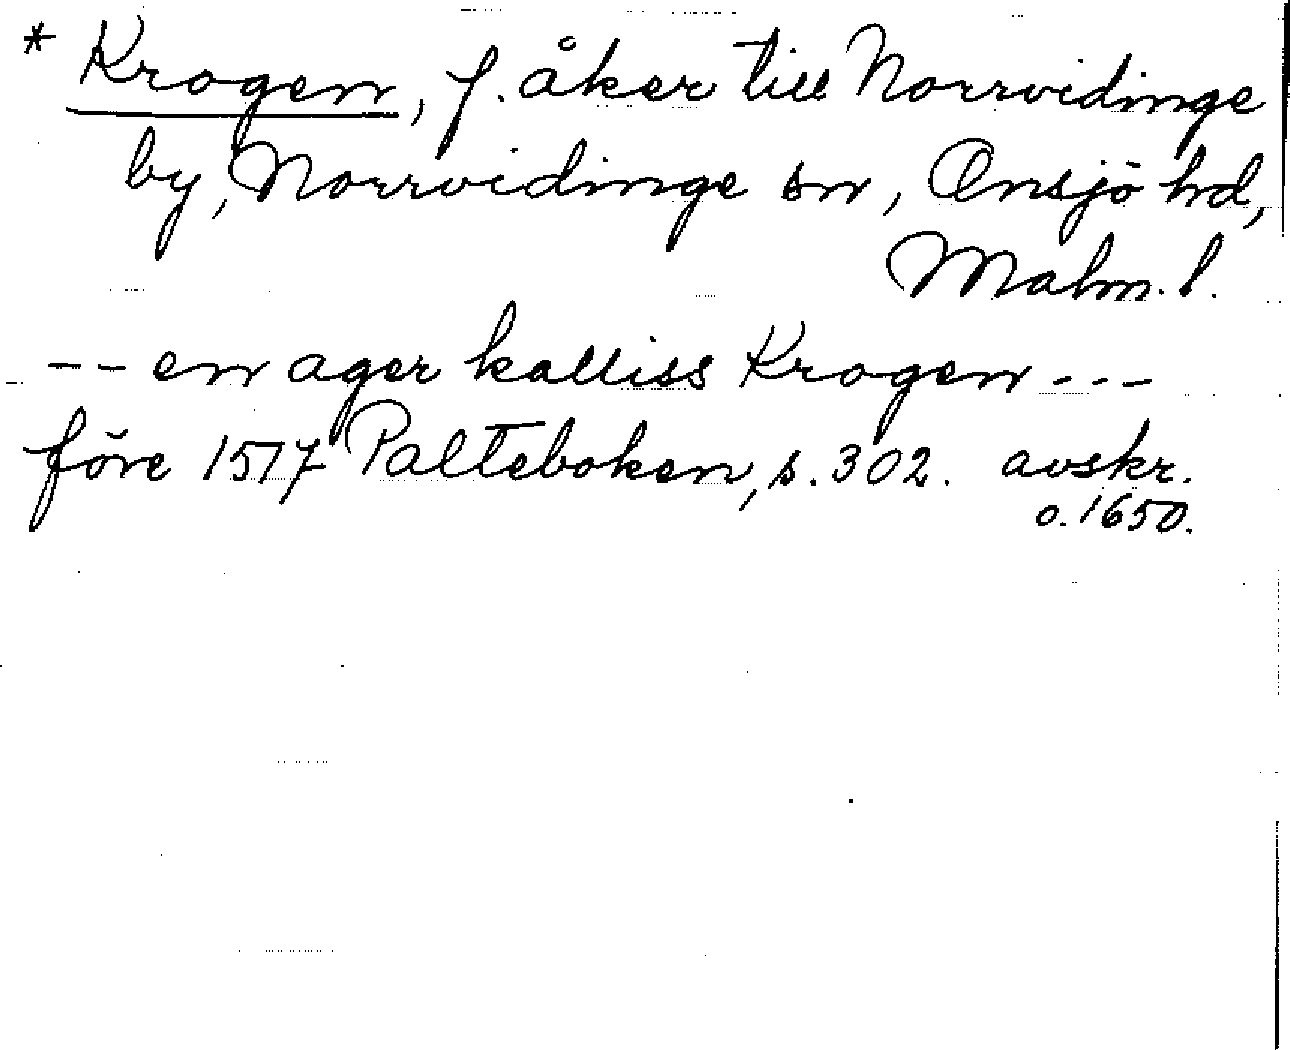 * Krogen, f. åker till Norrvidinge
by, Norrvidinge sn, Onsjö hd,
Malm. l.
-- en ager kalliss Krogen ---
före 1517 Palteboken, s. 302. avskr.
o. 1650.